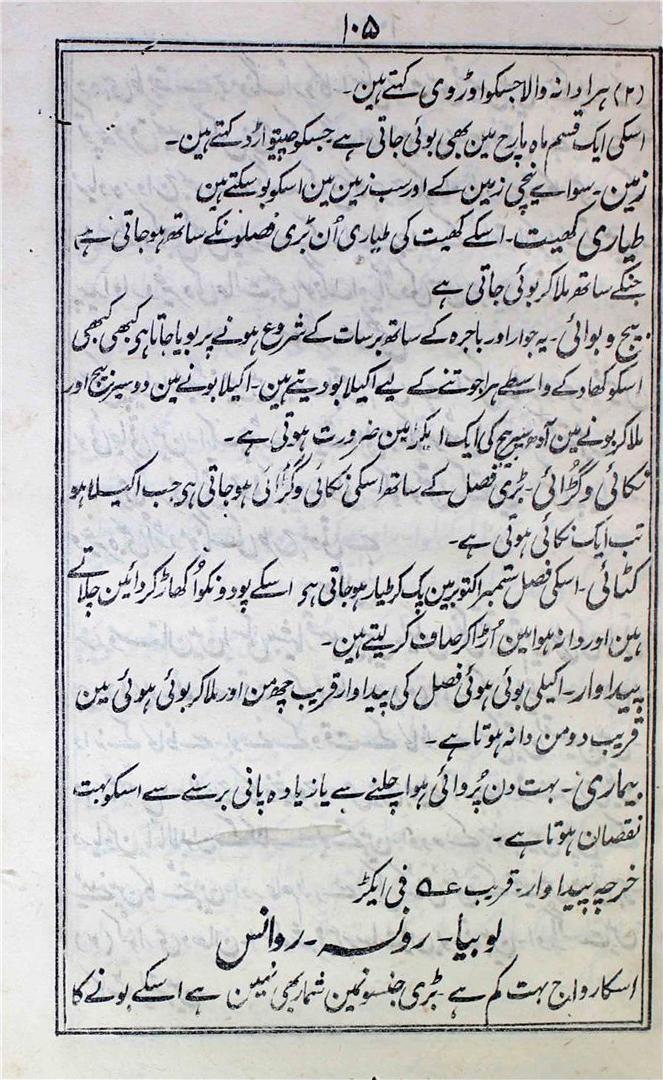 ۱۰۵
(۲) ہرا دانہ والا جسکو اوڑوی کہتے ہین۔
اسکی ایک قسم ماہ مارچ مین بھی بوئی جاتی ہے جسکو چیتوا ارد کہتے ہین۔
زمین۔ سواے نیچی زمین کے اور سب زمین مین اسکو بو سکتے ہین
طیاری کھیت۔ اسکے کھیت کی طیاری اُن بڑی فصلونکے ساتھ ہو جاتی ہے
جنکے ساتھ ملا کر بوئی جاتی ہے
بیج و بوائی۔ یہ جوار اور باجرہ کے ساتھ برسات کے شروع ہونے پر بویا جاتا ہی کبھی کبھی
اسکو کھاد کے واسطے ہرا جوتنے کے لیے اکیلا بو دیتے ہین۔ اکیلا بونے مین دو سیر بیج اور
ملا کر بونے مین آدھ سیر بیج کی ایک ایکڑ مین ضرورت ہوتی ہے۔
نکائی و گڑائی۔ بڑی فصل کے ساتھ اسکی نکائی و گڑائی ہو جاتی ہی جب اکیلا ہو
تب ایک نکائی ہوتی ہے۔
کٹائی۔ اسکی فصل ستمبر اکتوبر مین پک کر طیار ہو جاتی ہی اسکے پودونکو اُکھاڑ کر دائین چلاتے
ہین اور دانہ ہوا مین اُڑا کر صاف کر لیتے ہین۔
پیداوار۔ اکیلی بوئی ہوئی فصل کی پیداوار قریب چھ من اور ملا کر بوئی ہوئی مین
قریب دو من دانہ ہوتا ہے۔
بیماری۔ بہت دن پُروائی ہوا چلنے سے یا زیادہ پانی برسنے سے اسکو بہت
نقصان ہوتا ہے۔
خرچہ پیداوار۔ قریب فی ایکڑ
لوبیا۔ رونسہ۔ روانس
اسکا رواج بہت کم ہے۔ بڑی جنسونمین شمار بھی نہین ہے اسکے بونے کا